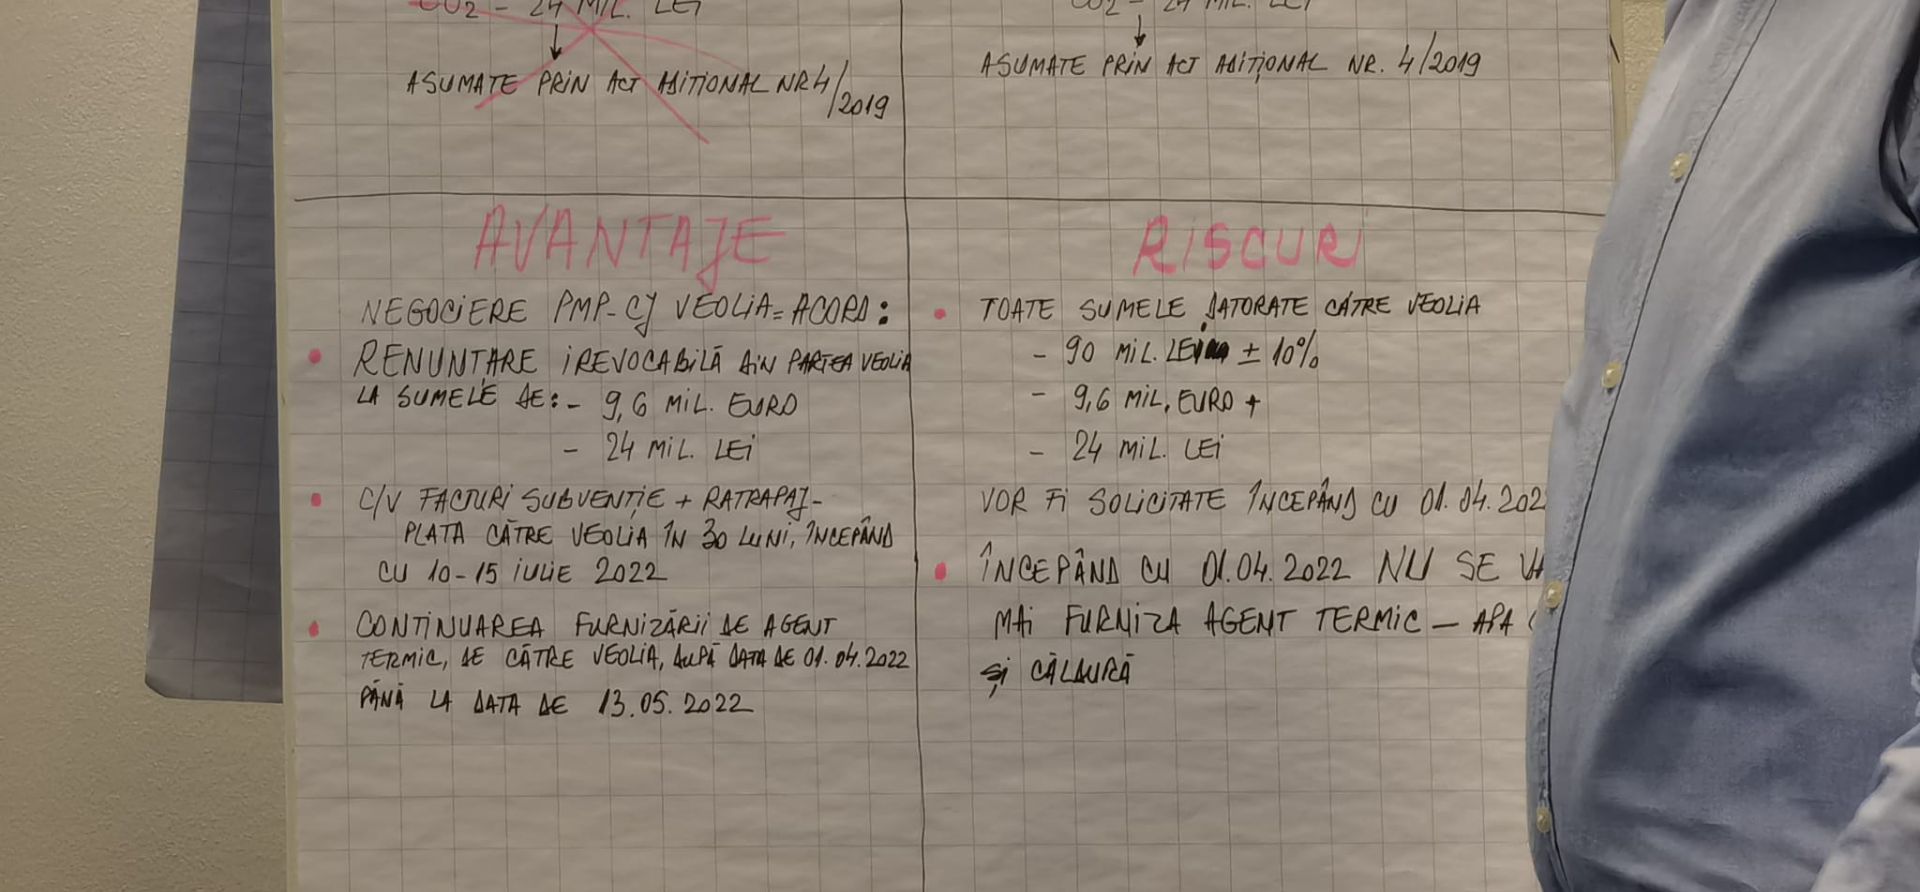 CO2 - 24 MIL. LEI
ASUMATE PRIN ACT ADIȚIONAL NR 4/2019
CO2 - 24 MIL. LEI
ASUMATE PRIN ACT ADIȚIONAL NR. 4/2019
AVANTAJE
NEGOCIERE PMP-CJ VEOLIA = ACORD:
• RENUNȚARE IREVOCABILĂ DIN PARTEA VEOLIA
LA SUMELE DE: - 9,6 MIL. EURO
- 24 MIL. LEI
• C/V FACTURI SUBVENȚIE + RATRAPAJ -
PLATA CĂTRE VEOLIA ÎN 30 LUNI, ÎNCEPÂND
CU 10-15 IULIE 2022
• CONTINUAREA FURNIZĂRII DE AGENT
TERMIC, DE CĂTRE VEOLIA, DUPĂ DATA DE 01.04.2022
PÂNĂ LA DATA DE 13.05.2022
RISCURI
• TOATE SUMELE DATORATE CĂTRE VEOLIA
- 90 MIL. LEI ± 10%
- 9,6 MIL. EURO +
- 24 MIL. LEI
VOR FI SOLICITATE ÎNCEPÂND CU 01.04.202
• ÎNCEPÂND CU 01.04.2022 NU SE VA
MAI FURNIZA AGENT TERMIC - APA
ȘI CĂLDURĂ